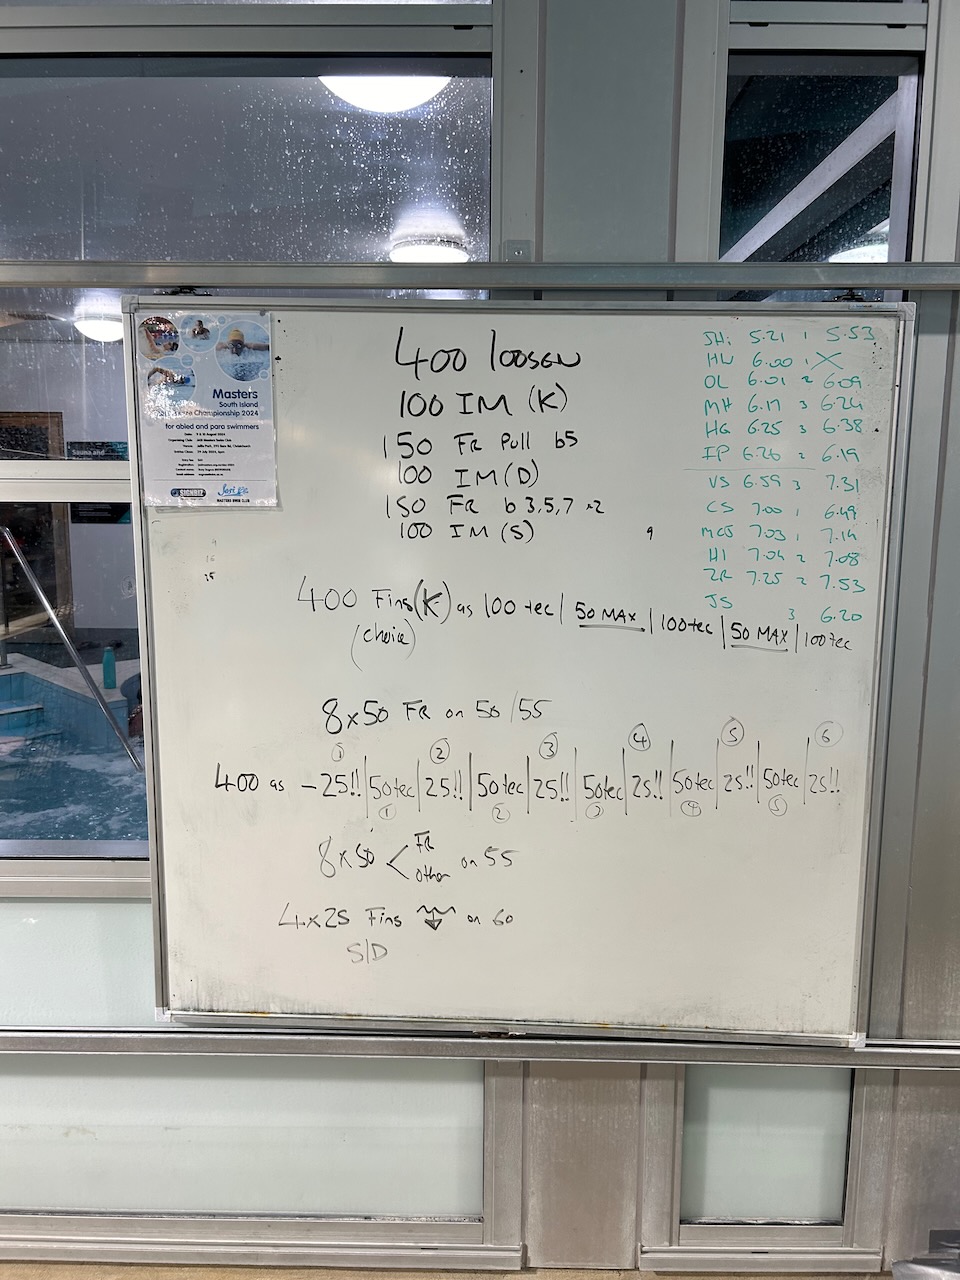 Masters
South Island
Championship 2024
for abled and para swimmers
SIGNBIZ
MASTERS SWIM CLUB
Sauna and
400 loosen
100 IM (K)
150 FR Pull b5
100 IM (D)
150 FR b 3,5,7 x2
100 IM (S)
9
SH: 5.21 1 5.53
HW 6.00 1 X
OL 6.01 2 6.09
MH 6.17 3 6.24
HG 6.25 3 6.38
IP 6.26 2 6.19
VS 6.59 3 7.31
CS 7.00 1 6.49
MCJ 7.03 1 7.14
HI 7.04 2 7.08
ZR 7.25 2 7.53
JS 3 6.20
400 Fins (K) as 100 tec | 50 MAX | 100 tec | 50 MAX | 100 tec
(choice)
8x50 FR on 50/55
① ② ③ ④ ⑤ ⑥
400 as - 25!! | 50 tec | 25!! | 50 tec | 25!! | 50 tec | 25!! | 50 tec | 25!! | 50 tec | 25!!
① ② ③ ④ ⑤
8x50 < FR
other on 55
4x25 Fins on 60
S/D